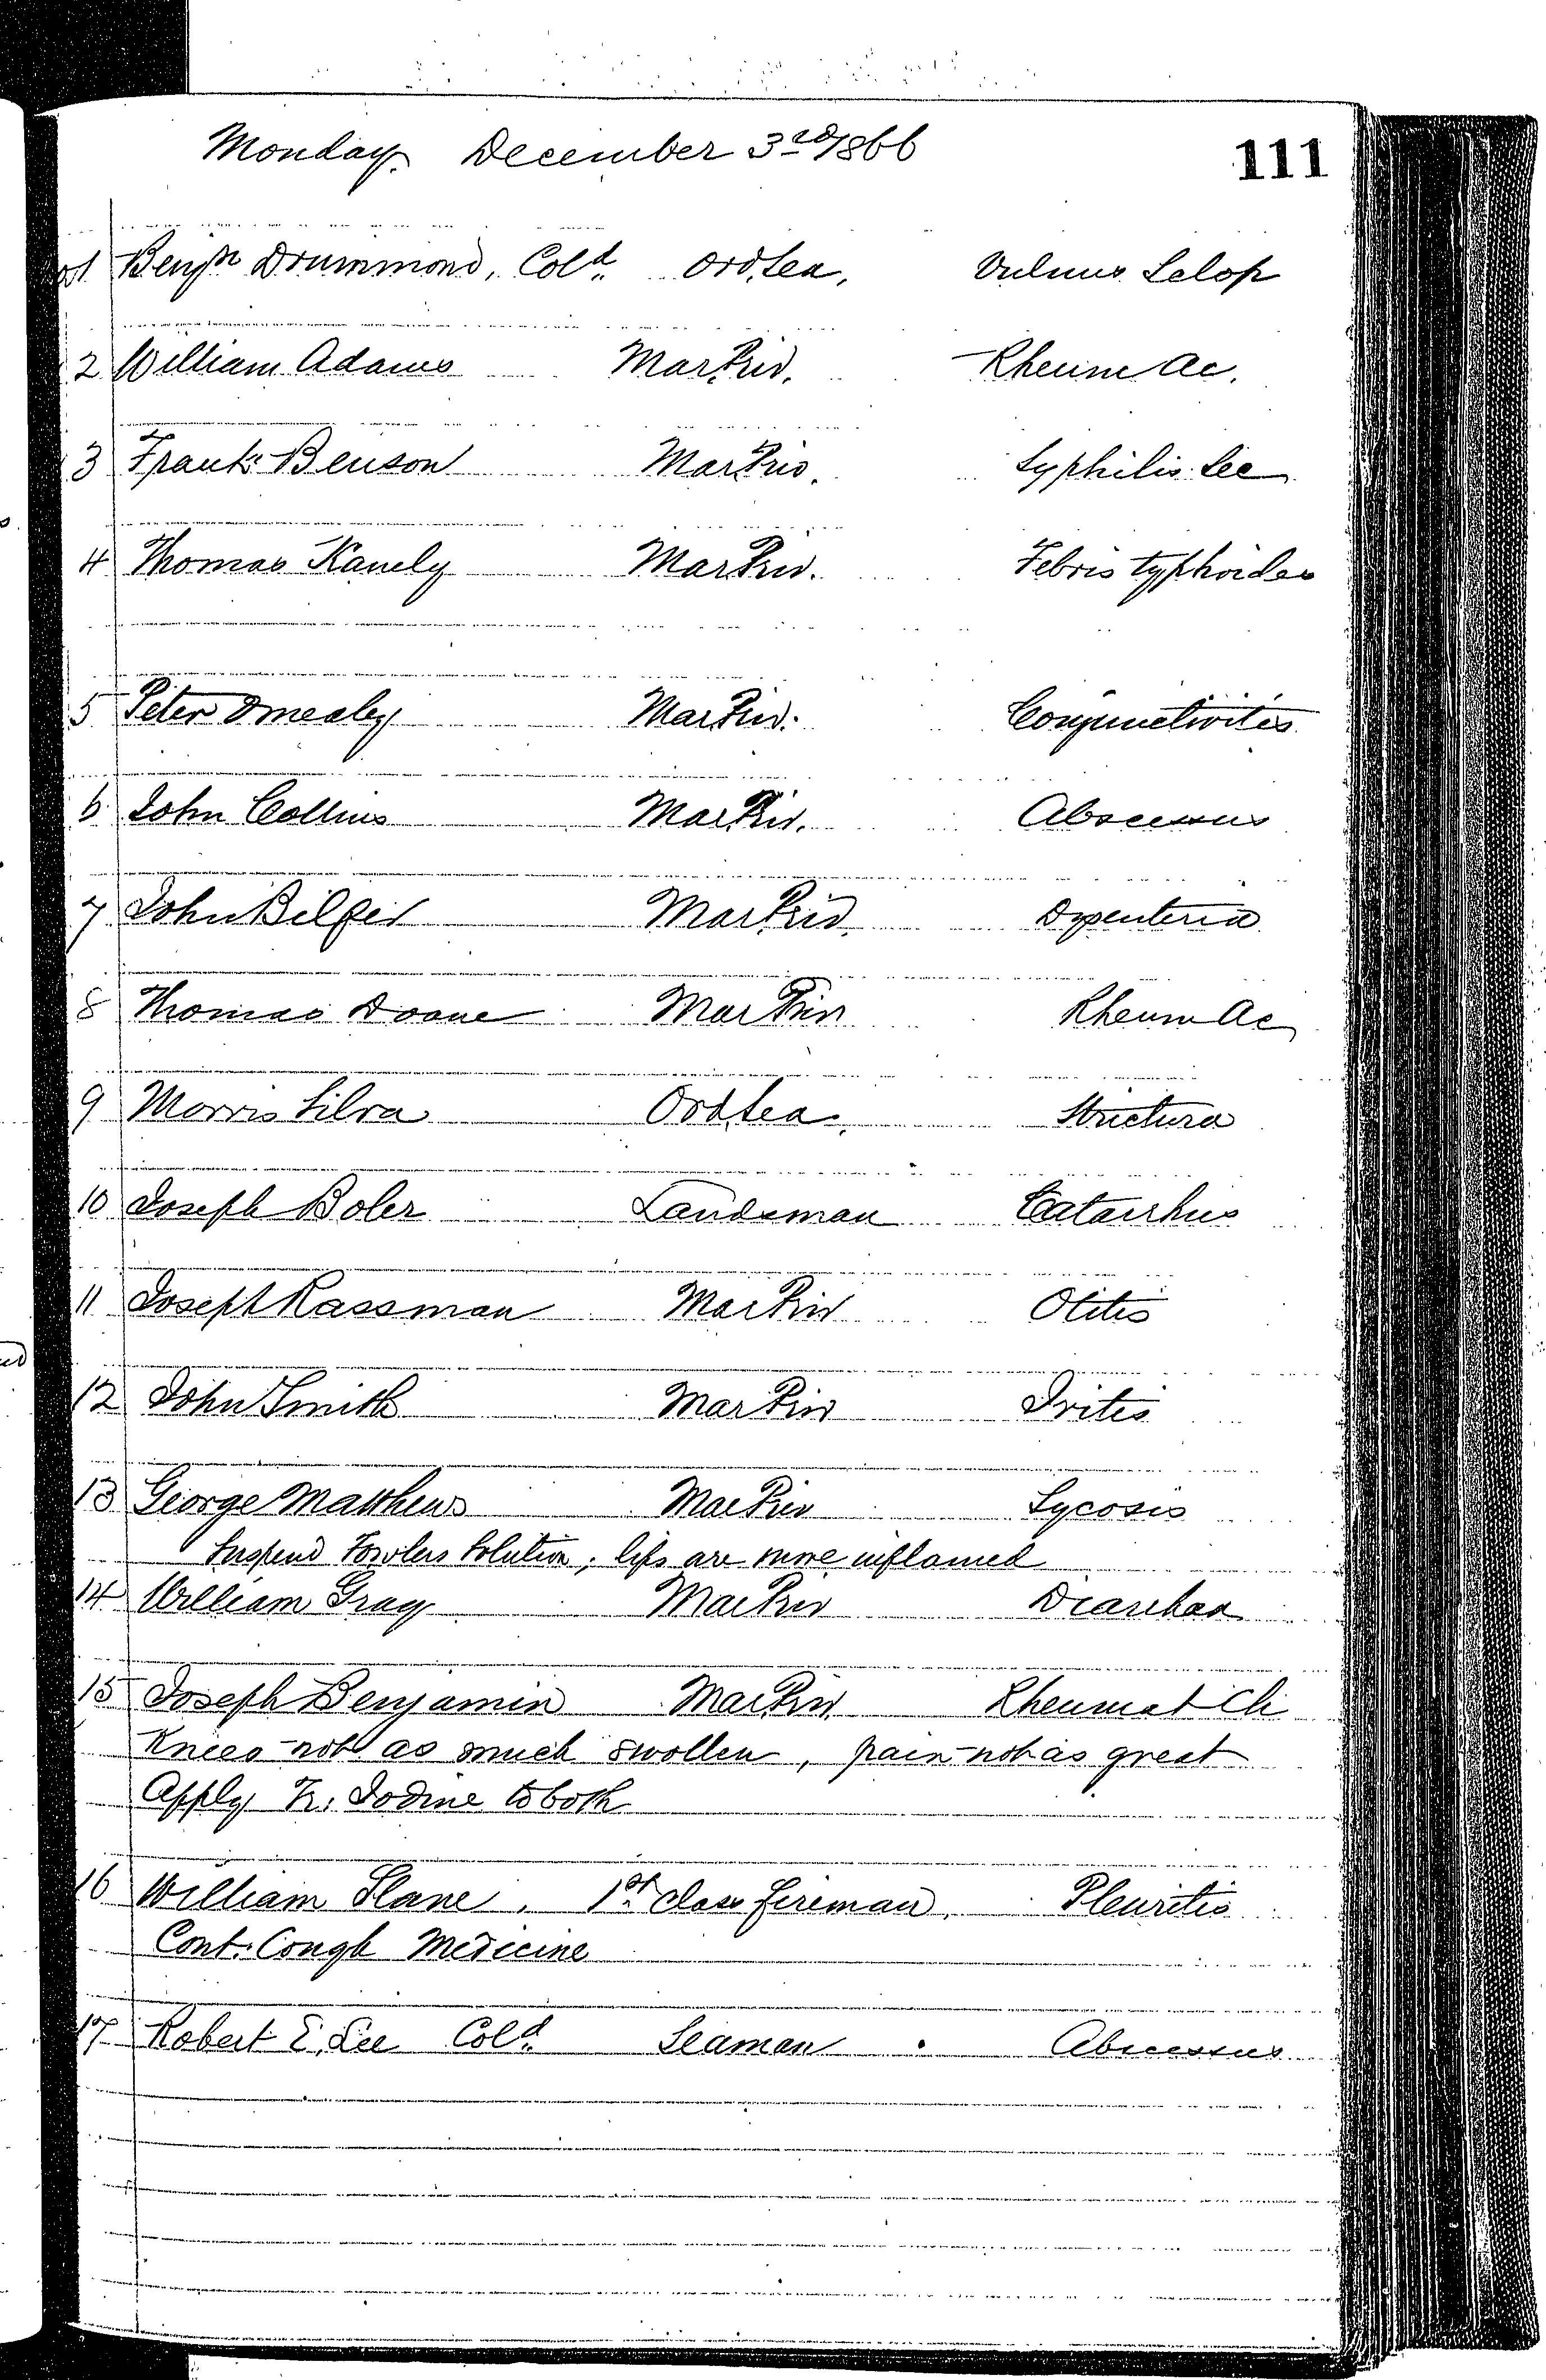 Monday. December 3rd/866
111
1 Benjn Drummond, Cold Ord,Sea, Vulnus Sclop
2 William Adams Mar.Priv. Rheum Ac.
3 Frank Benson Mar.Priv. Syphilis Sec
4 Thomas Kanely Mar.Priv. Febris typhoides
5 Peter Omealey Mar.Priv. Conjunctivites
6 John Collins Mar.Priv. Abscessus
7 John Bilfer Mar.Priv. Dysenteria
8 Thomas Doane Mar Priv Rheum Ac
9 Morris Silva Ord,Sea. Strictura
10 Joseph Boler Landsman Catarrhus
11 Joseph Rassman Mar Priv Otitis
12 John Smith Mar Priv Iritis
13 George Matthews Mar Priv Sycosis
Suspend Fowlers Solution, lips are more inflamed
14 William Gray Mar Priv Diarrhaa
15 Joseph Benjamin Mar.Priv. Rheumat Ch
Knees not as much swollen, pain not as great
Apply Tr. Iodine to both
16 William Slane, 1st class fireman, Pleuritis
Cont. Cough Medicine
17 Robert E. Lee Cold Seaman. Abscessus